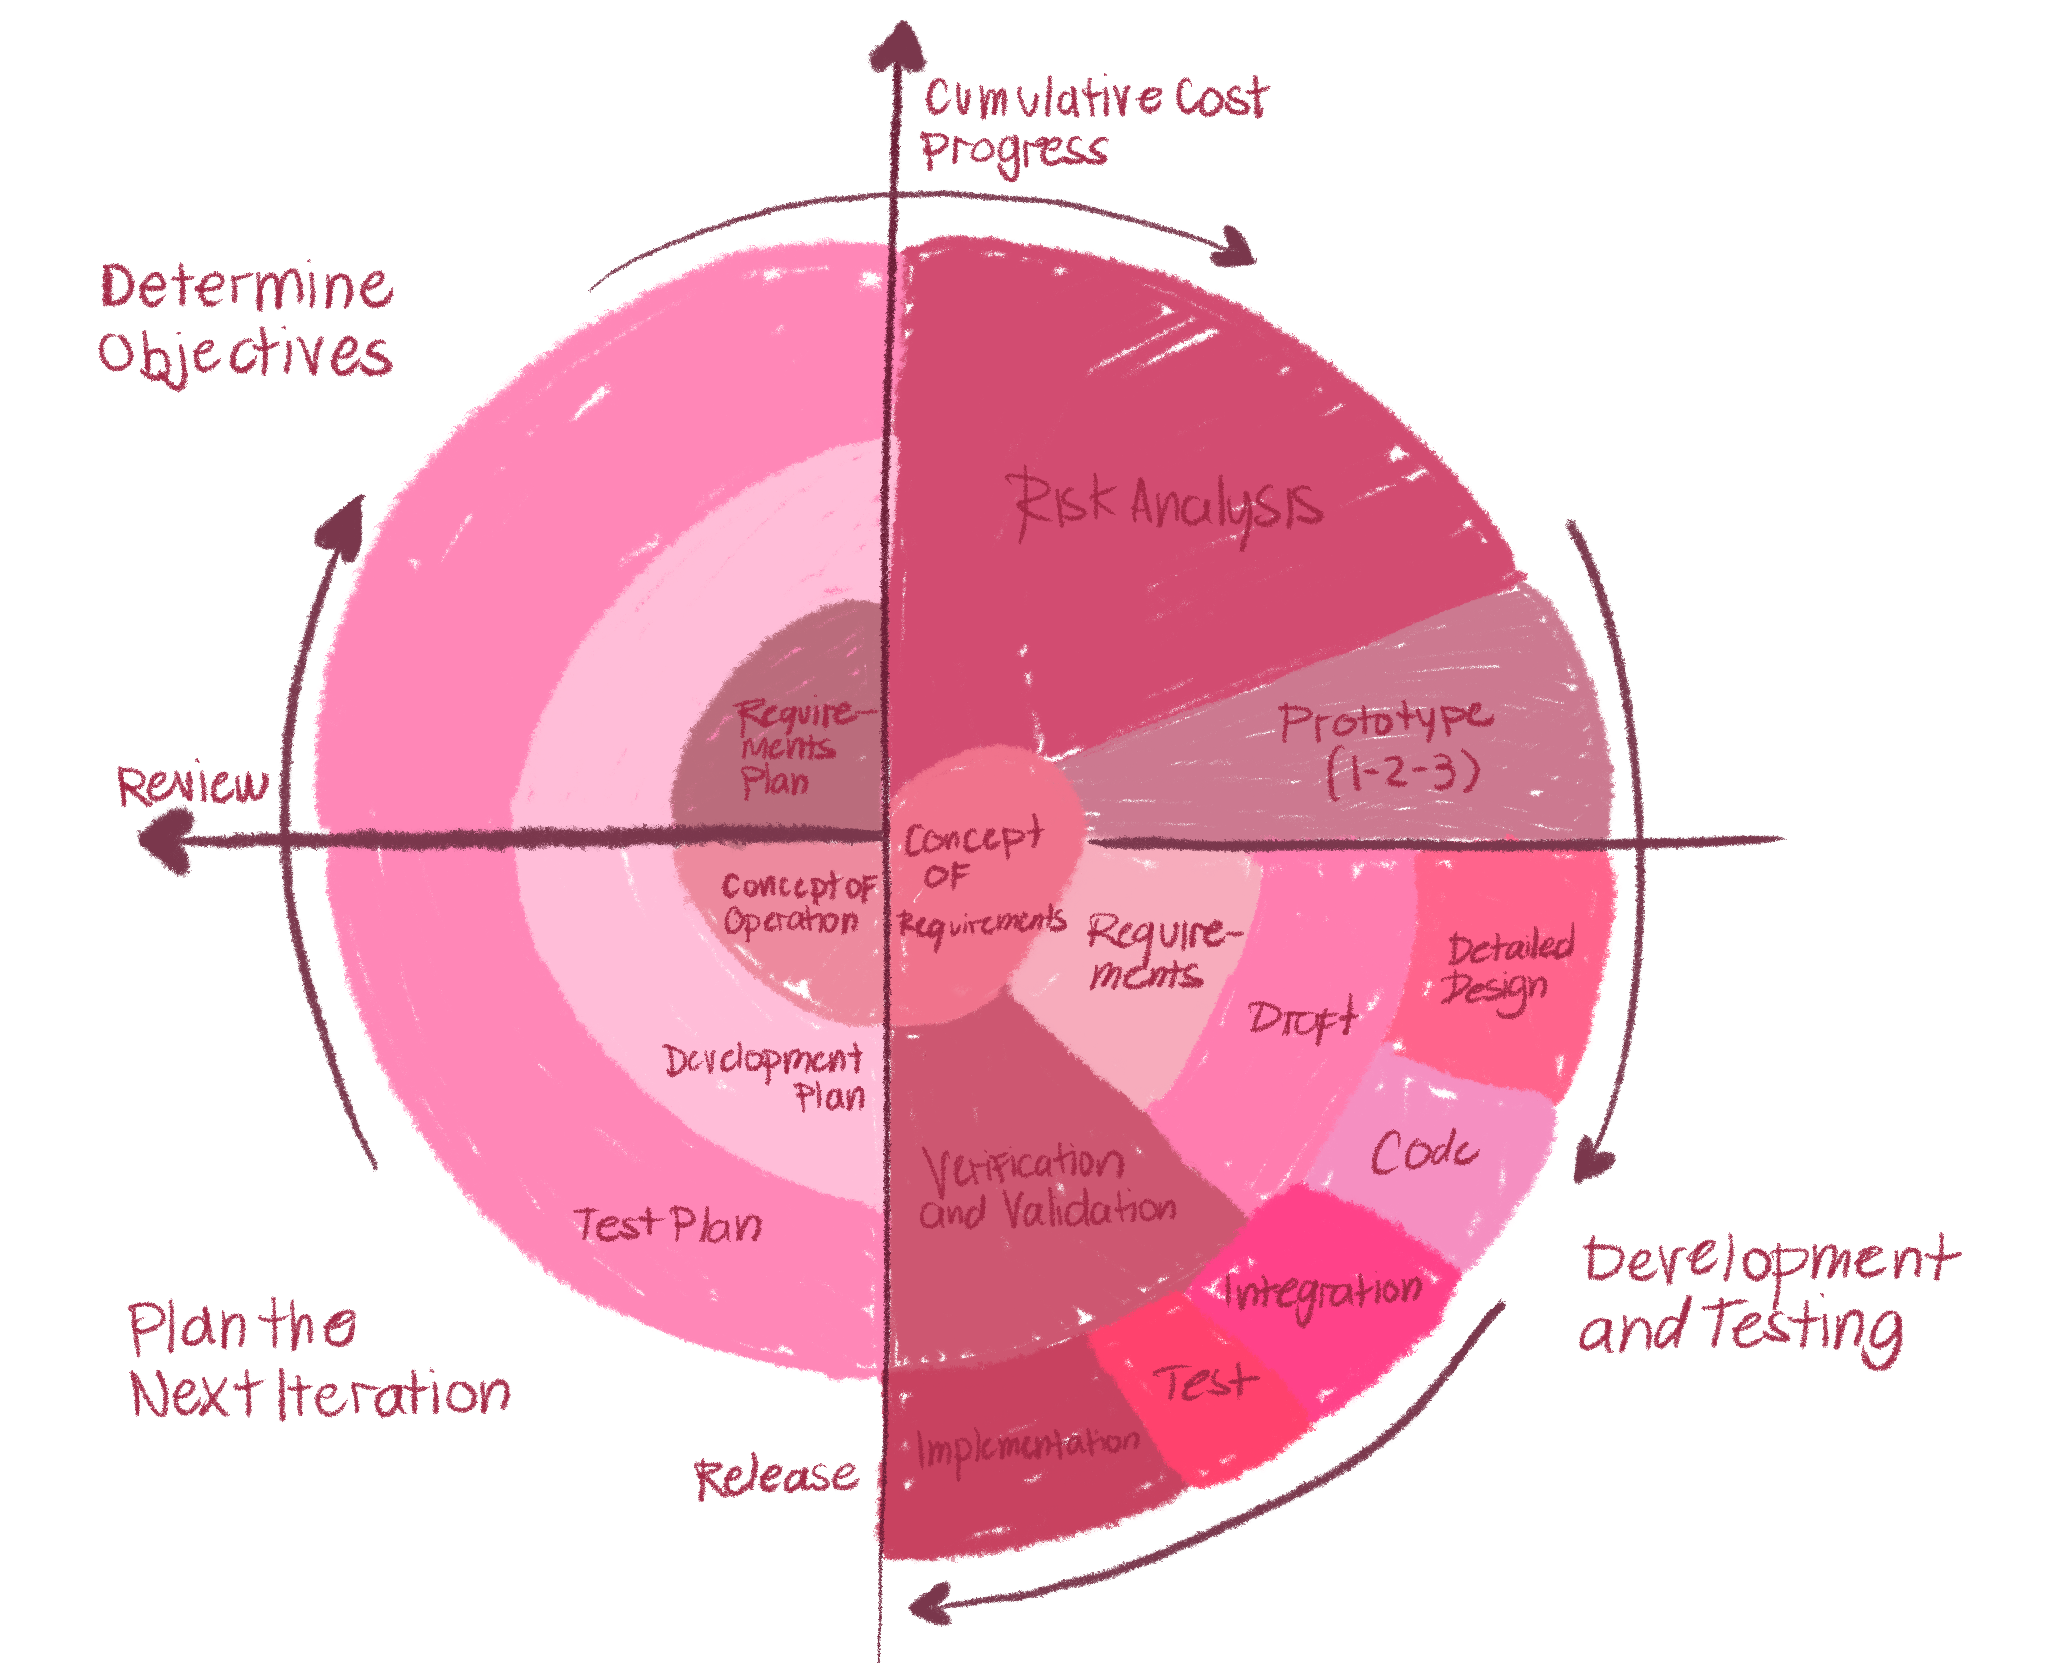 Cumulative Cost
Progress
Determine
Objectives
Risk Analysis
Prototype
(1-2-3)
Require-
ments
Plan
Review
Concept
OF
Requirements
Concept OF
Operation
Require-
ments
Detailed
Design
Draft
Development
Plan
Code
Verification
and Validation
Test Plan
Integration
Development
and Testing
Plan the
Next Iteration
Test
Implementation
Release